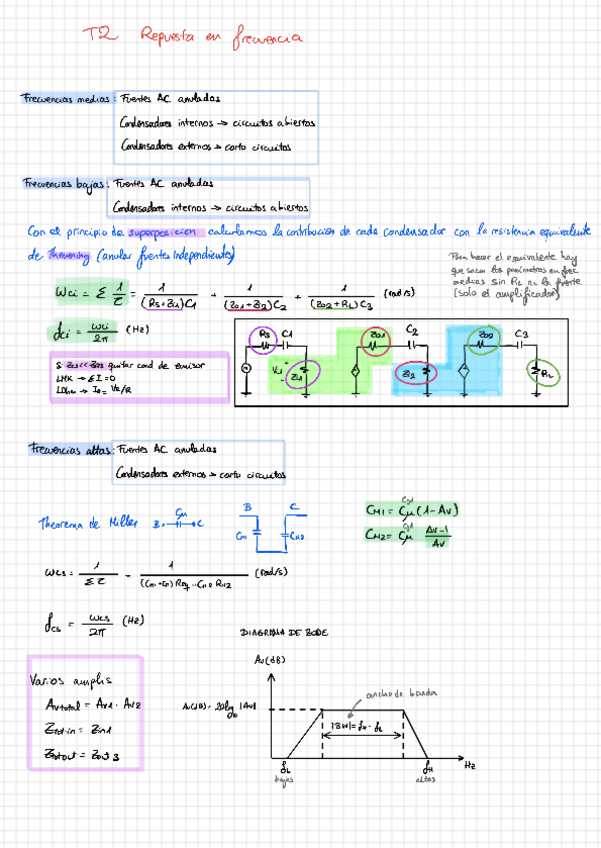 T2 Repuesta en frecuencia
Frecuencias medias: Fuentes AC anuladas
Condensadores internos → circuitos abiertos
Condensadores externos → corto circuitos
Frecuencias bajas: Fuentes AC anuladas
Condensadores internos → circuitos abiertos
Con el principio de superposicion calculamos la contribucion de cada condensador con la resistencia equivalente
de Thevening (anular fuentes independientes)
Para hacer el equivalente hay
que sacar los parámetros en frec
medias sin RL ni la fuente
(solo el amplificador)
Wci = Σ 1/τ = 1/((Rs+Zi1)C1) + 1/((Zo1+Zi2)C2) + 1/((Zo2+RL)C3) (rad/s)
fci = wci/2π (Hz)
Si Zi1<<Zo2 quitar cond de emisor
LKK → ΣI=0
LOhm → I = V/R
Rs C1 Zo1 C2 Zo2 C3
Vi1 Zi1 Zi2 RL
Frecuencias altas: Fuentes AC anuladas
Condensadores externos → corto circuitos
Theorema de Miller B Cμ C
B C
CM2
CM1 = Cμ (1-Av)
CM2 = Cμ (Av-1)/Av
wcs = 1/Στ
(rad/s)
fcs = wcs/2π (Hz)
DIAGRAMA DE BODE
Av(dB)
Varios amplis
Avtotal = Av1 · Av2
Ztotin = Zin1
Ztotout = Zout3
Av(dB) = 20log10 |Av|
ancho de banda
|BW| = fH - fL
fL
fH
Hz
bajas
altas